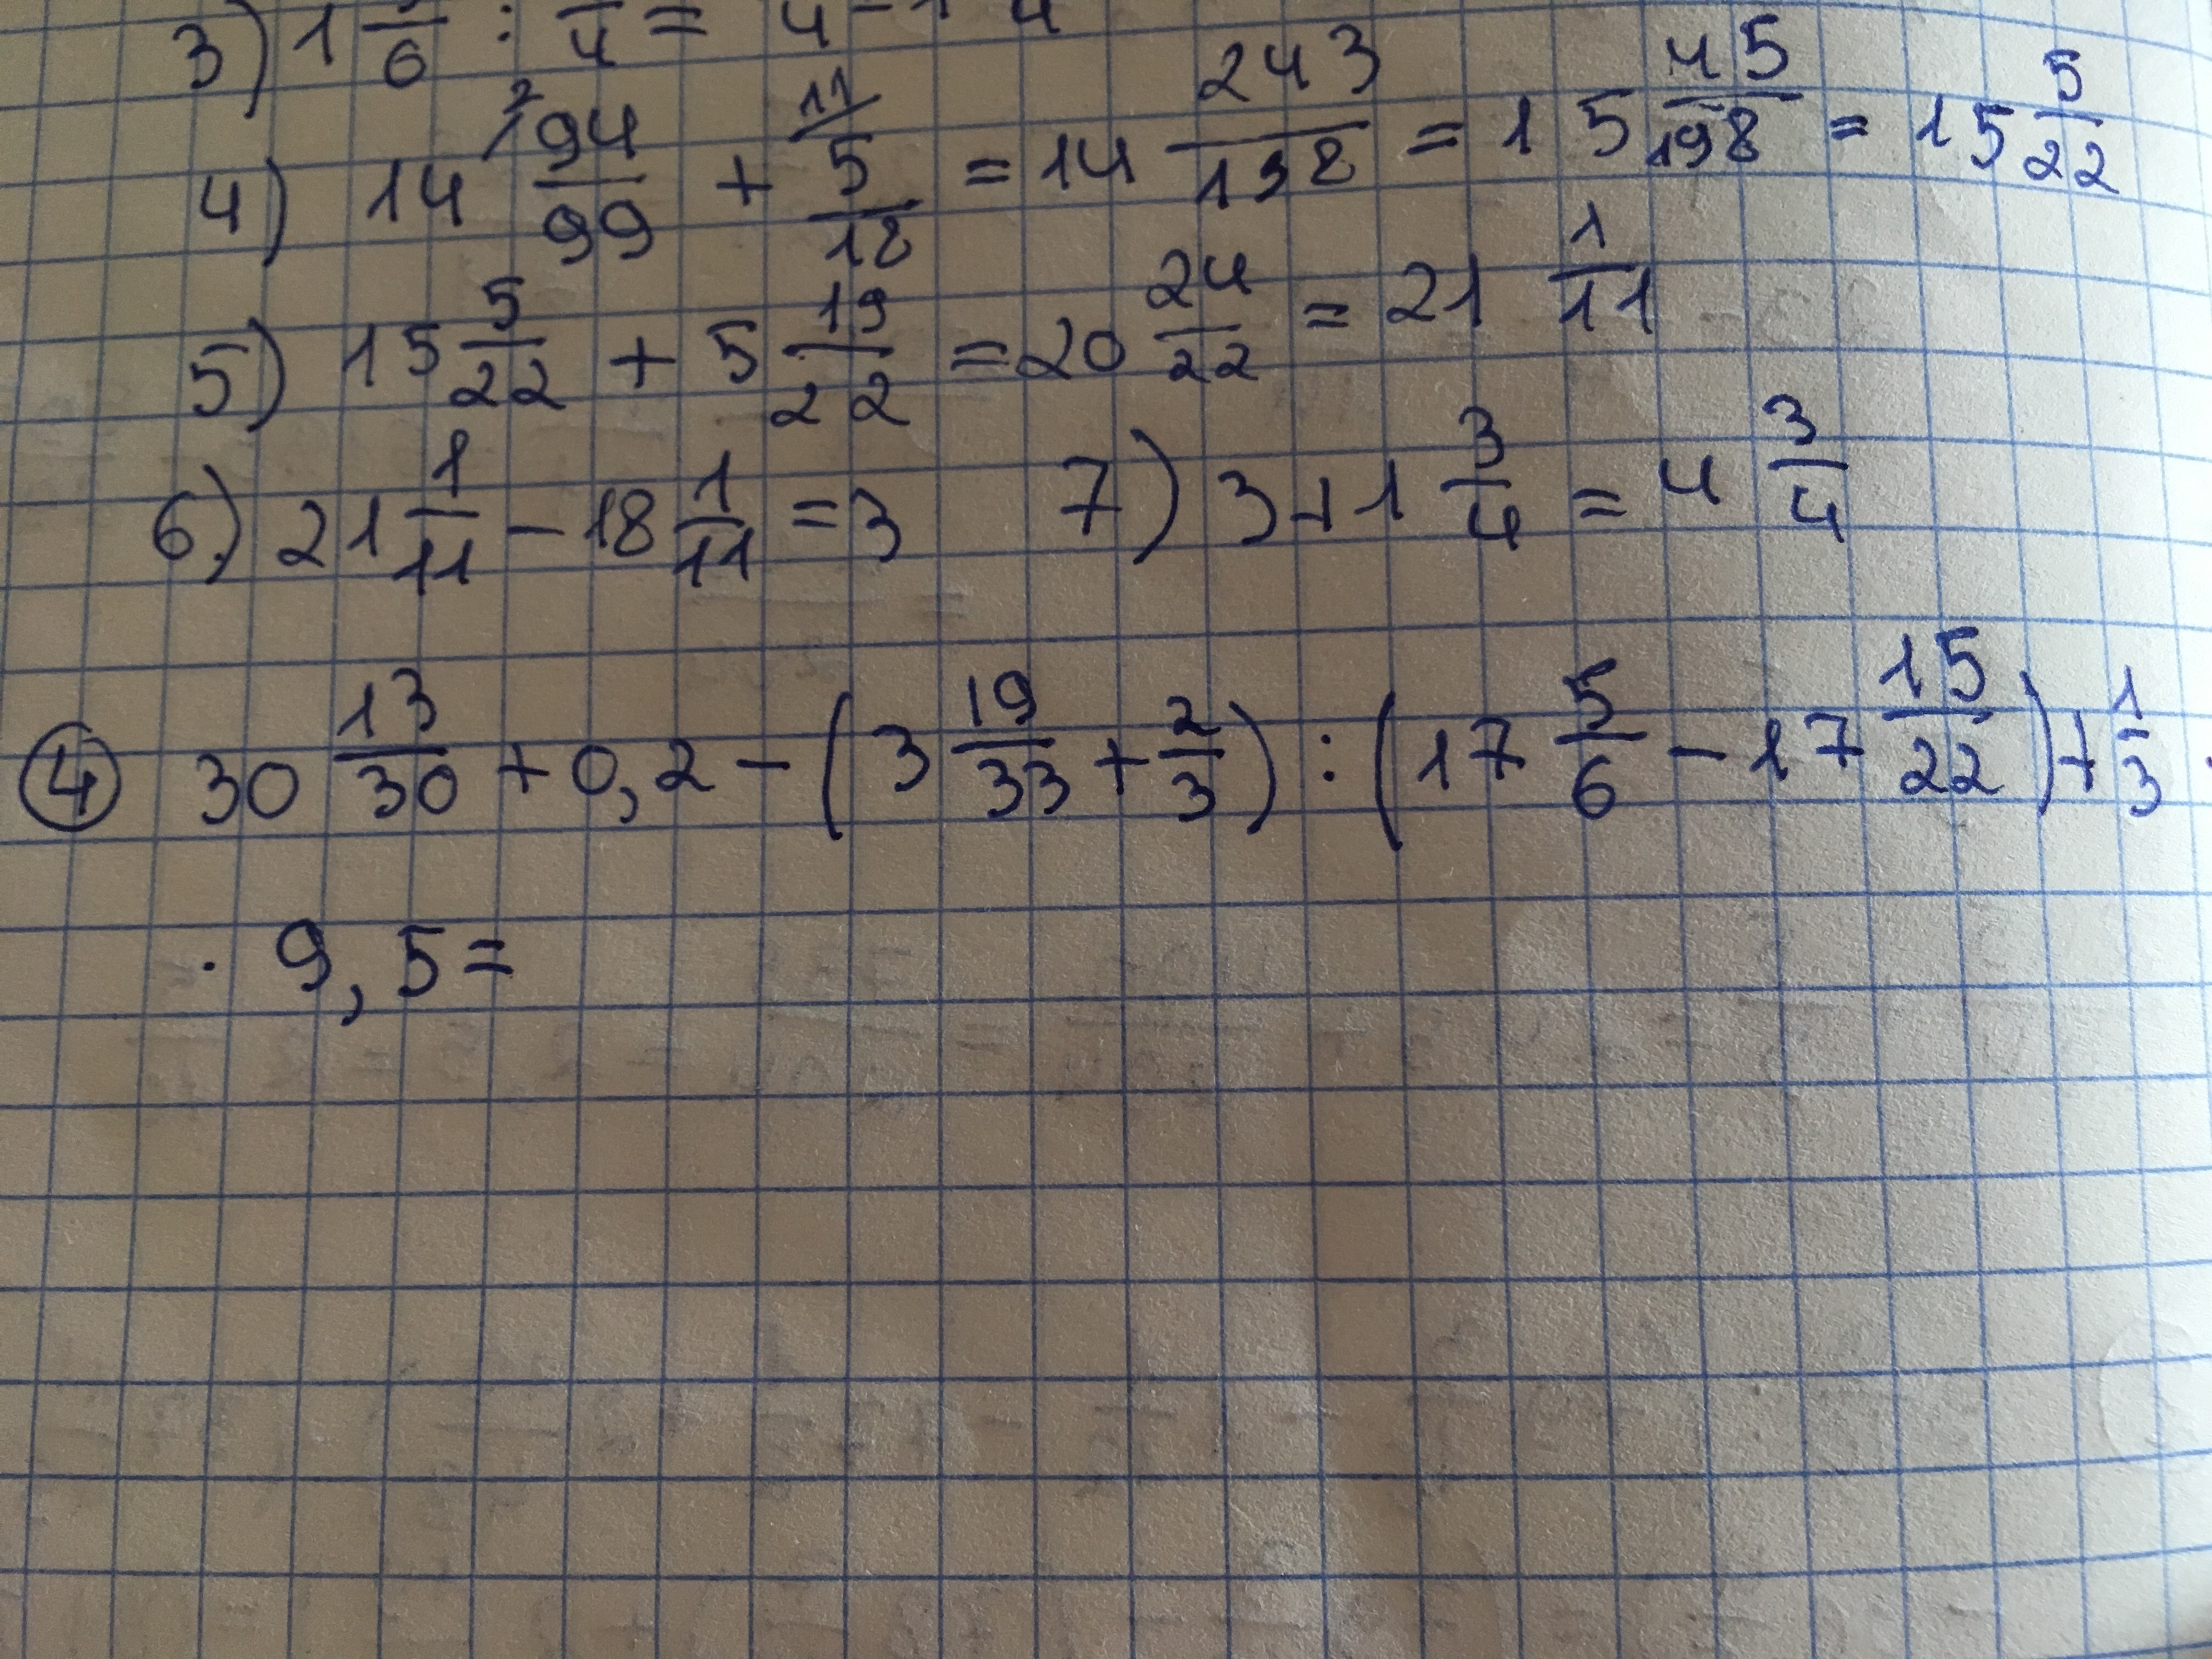 3) 1 /6 : /4 = 4 = 1 4
4) 14 ²94/99 + ¹¹5/18 = 14 243/198 = 15 45/198 = 15 5/22
5) 15 5/22 + 5 19/22 = 20 24/22 = 21 1/11
6) 21 1/11 - 18 1/11 = 3 7) 3 + 1 3/4 = 4 3/4
④ 30 13/30 + 0,2 - (3 19/33 + 2/3) : (17 5/6 - 17 15/22) + 1/3 ·
· 9,5 =